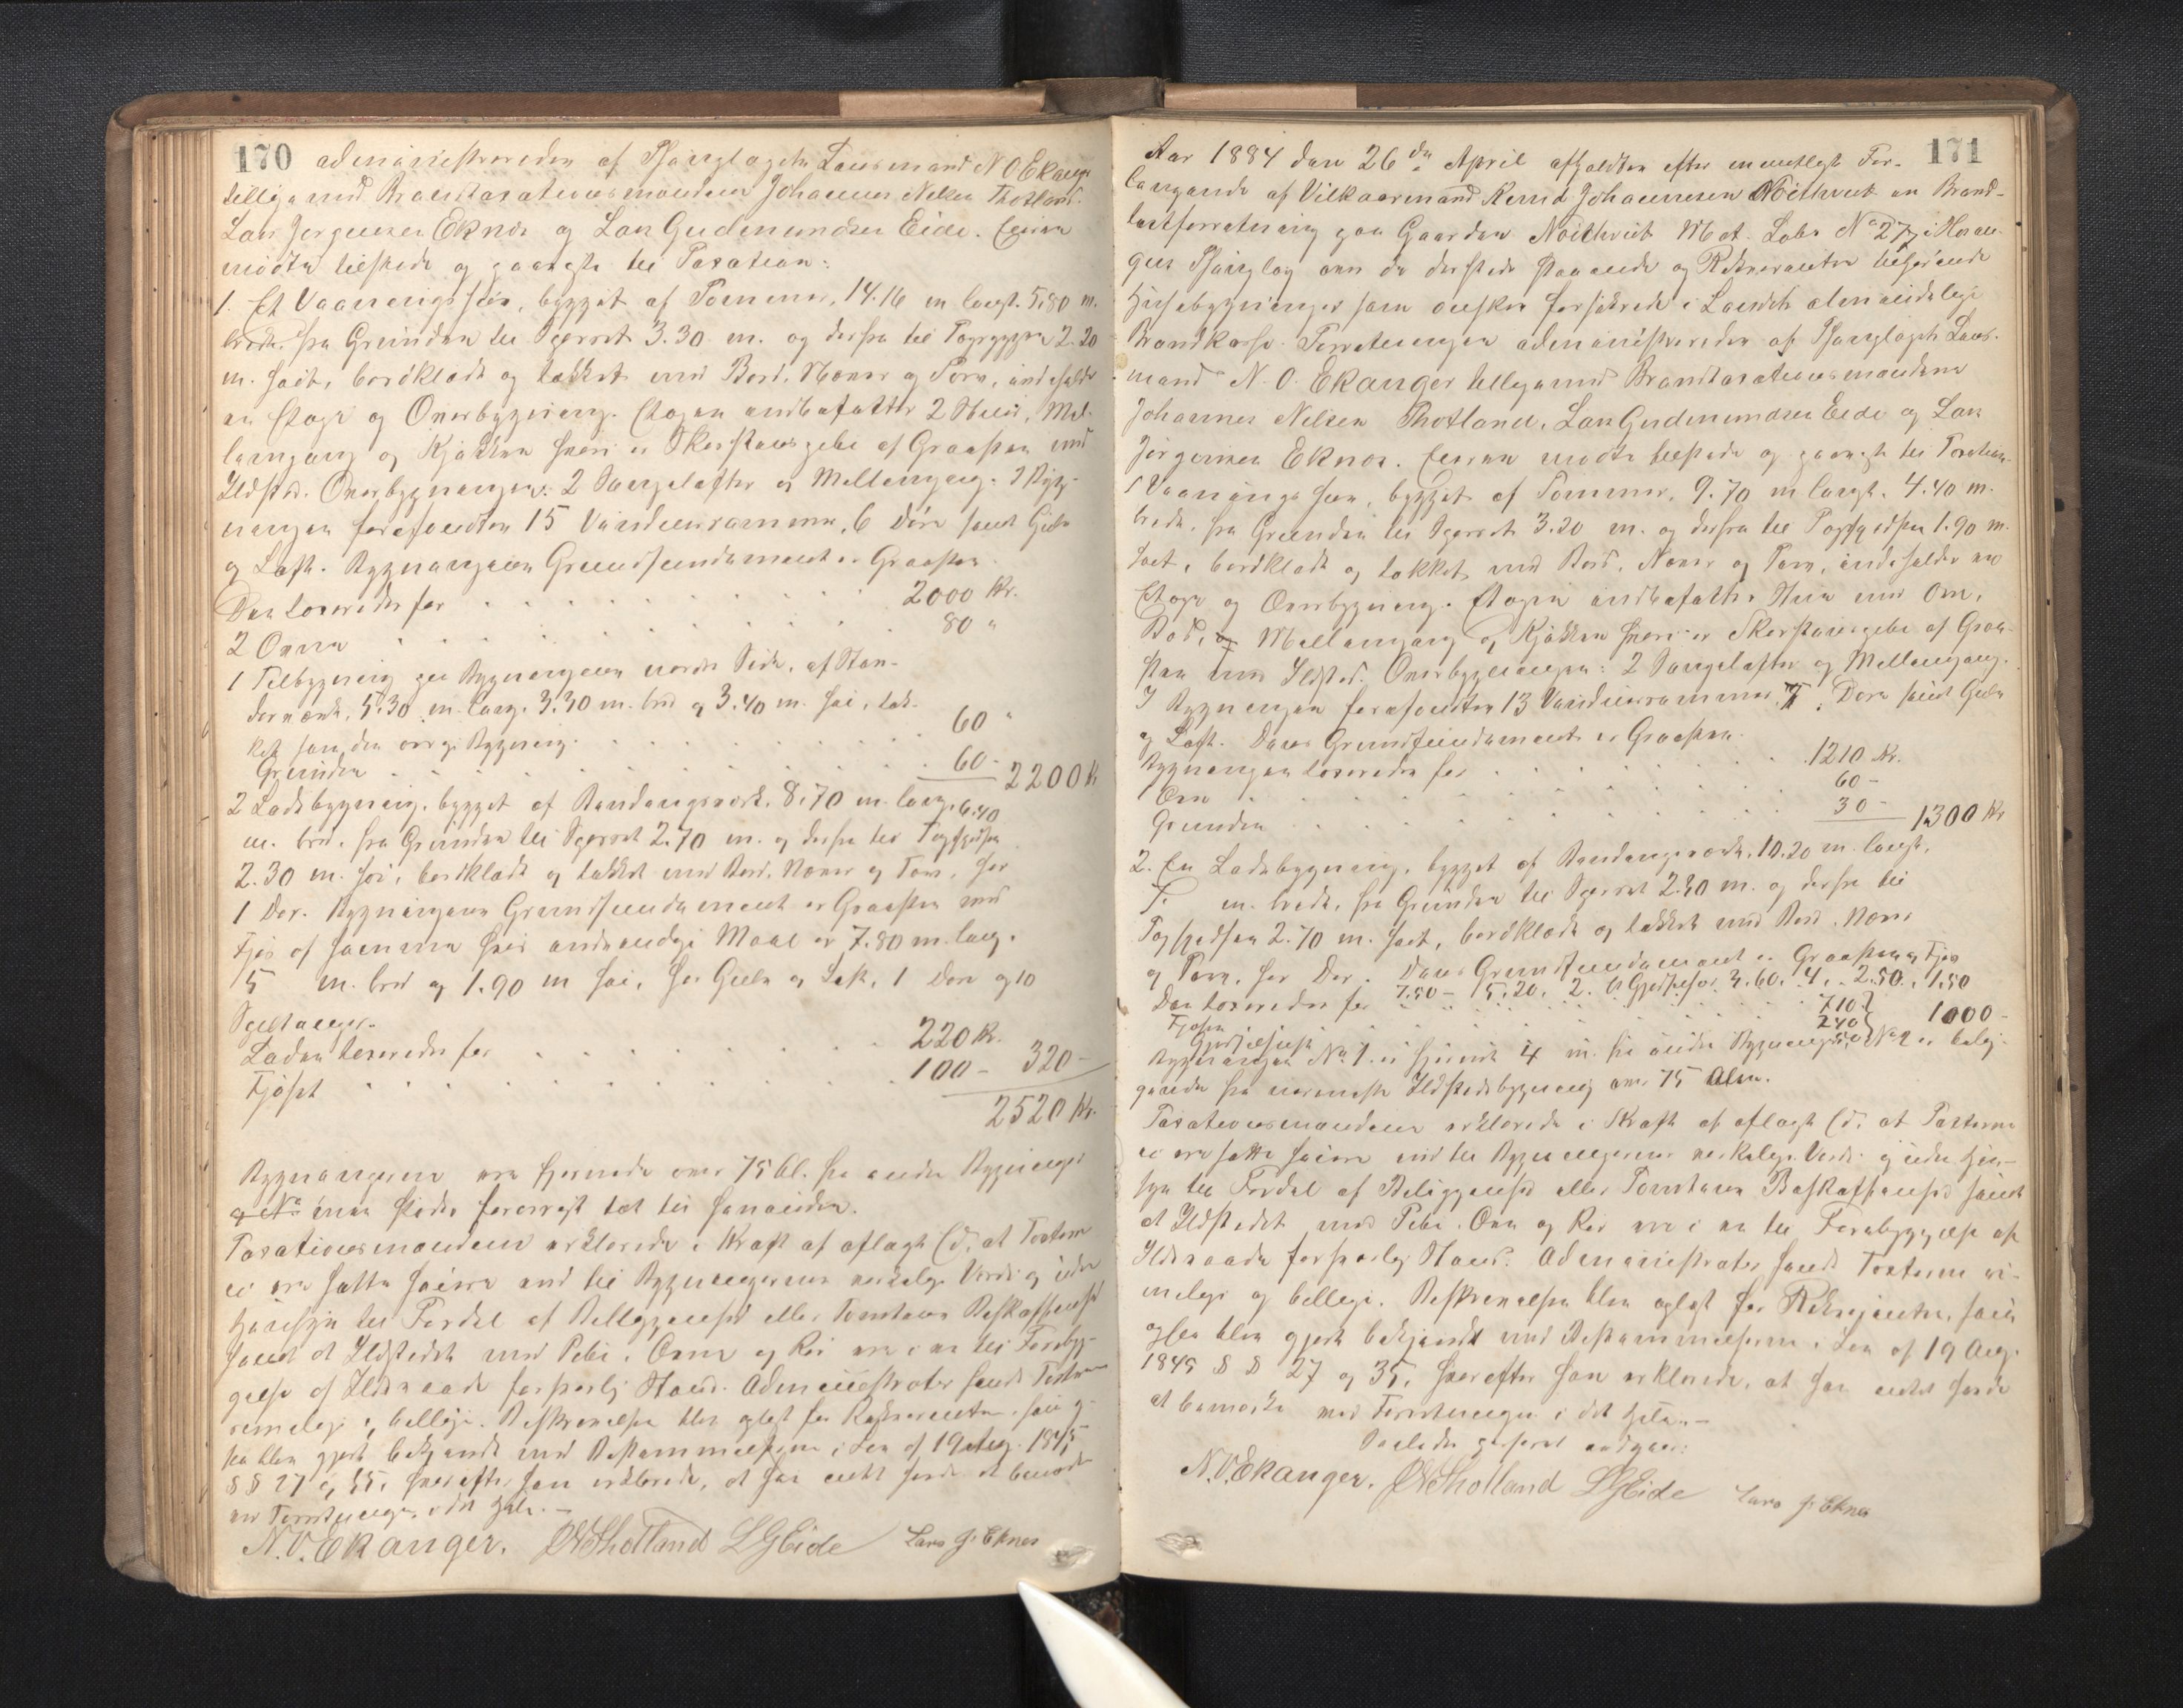 170 administreredes af Thinglagets Lensmand N O Ekanger
tilligemed Brandtaxationsmændene Johannes Nilsen Thotland
Lars Jørgensen Eknes og Lars Gudmundsen Eide. Eieren
mødte tilstede og gaaes til Taxation:
1. Et Vaaningshus, bygget af Tømmer, 14.16 m langt. 5.80 m.
bredt, fra Grunden til Gesimset 3.30 m. og derfra til Tagryggen 2.20
m. høit, bordklædt og tækket med Bord, Næver og Torv, indeholder
en Etage og Overbygning. Etagen indbefatter 2 Stuer, Mel-
lemgang og Kjøkken hvori er Skorstenspibe af Graasten med
Ildsted. Overbygningen: 2 Sængelofter og Mellemgang. I Byg-
ningen forefindtes 15 Vinduesrammer, 6 Døre samt Gulv
og Loft. Bygningens Grundfundament er Graasten.
Den taxeredes for 2000 Kr.
2 Ovne 80 "
1 Tilbygning paa Bygningens nordre Side, af Stan-
derværk, 5.30 m lang, 3.30 m. bred og 3.40 m. høi, tæk-
ket som den øvrige Bygning. 60 "
Grunden 60 - 2200 Kr
2 Ladebygning, bygget af Bindingsværk, 8.70 m lang, 6.40
m. bred, fra Grunden til 2.70 m. og derfra til Tagspidsen
2.30 m. høi, bordklædt og tækket med Bord, Næver og Torv, har
1 Dør. Bygningens Grundfundament er Graasten med
Fjøs af samme hvis indvendige Maal er 7.80 m. lang.
5 m. bred og 1.90 m høi, har Gulv og Loft, 1 Dør og 10
Laden taxeredes for 220 Kr.
Fjøset 100 - 320 -
2520 Kr.
Bygningerne ere fjernede over 75 Al. fra andre Bygninger
Taxationsmændene erklærede i Kraft af aflagt Ed, at Taxterne
ei ere satte høiere end til Bygningernes virkelige Værdi og uden
Hensyn til Fordel af Beliggenhed eller Tomtens Beskaffenhed
samt at Ildstedet med Pibe, Ovne og Rør ere i en til Forebyg-
gelse af Ildsvaade forsvarlig Stand. Administrator fandt Taxterne
rimelige og billige. Beskrivelsen blev oplæst for Rekvirenten, som og-
saa blev gjort bekjendt med Bestemmelserne i Lov af 19 Aug. 1845
§ § 27 og 35, hvorefter han erklærede, at han intet havde at bemærke
ved Forretningen i det Hele. -
N. O. Ekanger. JNThotland LGEide Lars J. Eknes
171
Aar 1884 den 26de April afholdtes efter mundtlig For-
langende af Vilkaarmand Knud Johannesen Nöithveit en Brand-
taxtforretning paa Gaarden Nöithveit Mat. Løbe No 27 i Hosan-
ger Thinglag over de dersteds staaende og Rekvirenten tilhørende
Husebygninger som ønskes forsikrede i Landets almindelige
Brandkasse. Forretningen administreredes af Thinglagets Lens-
mand N. O. Ekanger tilligemed Brandtaxationsmændene
Johannes Nilsen Thotland, Lars Gudmundsen Eide og Lars
Jörgensen Eknes. Eieren mødte tilstede og gaaes til Taxation
1 Vaaningshus, bygget af Tømmer, 9.70 m langt, 4.40 m.
bredt, fra Grunden til Gesimset 3.20 m. og derfra til Tagspidsen 1.90 m.
høit, bordklædt og tækket med Bord, Næver og Torv, indeholder en
Etage og Overbygning. Etagen indbefatter Stue med Ovn,
Bod, og Mellemgang og Kjøkken hvori er Skorstenspibe af Graa-
sten med Ildsted. Overbygningen: 2 Sængelofter og Mellemgang.
I Bygningen forefindtes 13 Vinduesrammer, 7 Døre samt Gulv
og Loft. Dens Grundfundament er Graasten.
Bygningen taxeredes for 1210 Kr.
Ovn 60 -
Grunden 30 - 1300 Kr
2. En Ladebygning, bygget af Bindingsværk, 10.20 m langt,
5. m. bredt, fra Grunden til 2.20 m. og derfra til
Tagspidsen 2.70 m. høit, bordklædt og tækket med Bord, Næver
og Torv, har Dør. Dens Grundfundament er Graasten og Fjøs
7.50 - 5.20, 2. 3.60. 4. 2.50. 1.50
Den taxeredes for 710
Fjøsen 240 1000 -
Bygningen No 1 er fjernet 4 m. fra andre Bygninger, No 2 er belig-
gende fra nærmeste Ildstedsbygning over 75 Alen.
Taxationsmændene erklærede i Kraft af aflagt Ed, at Taxterne
ei ere satte høiere end til Bygningernes virkelige Værdi og uden Hen-
syn til Fordel af Beliggenhed eller Tomtens Beskaffenhed samt
at Ildstedet med Pibe, Ovn og Rør ere i en til Forebyggelse af
Ildsvaade forsvarlig Stand. Administrator fandt Taxterne ri-
melige og billige. Beskrivelsen blev oplæst for Rekvirenten, som
ogsaa blev gjort bekjendt med Bestemmelserne i Lov af 19 Aug.
1845 § § 27 og 35, hvorefter han erklærede, at han intet havde
at bemærke ved Forretningen i det Hele. -
Saaledes passeret
N. O. Ekanger. JNThotland LGEide Lars J. Eknes